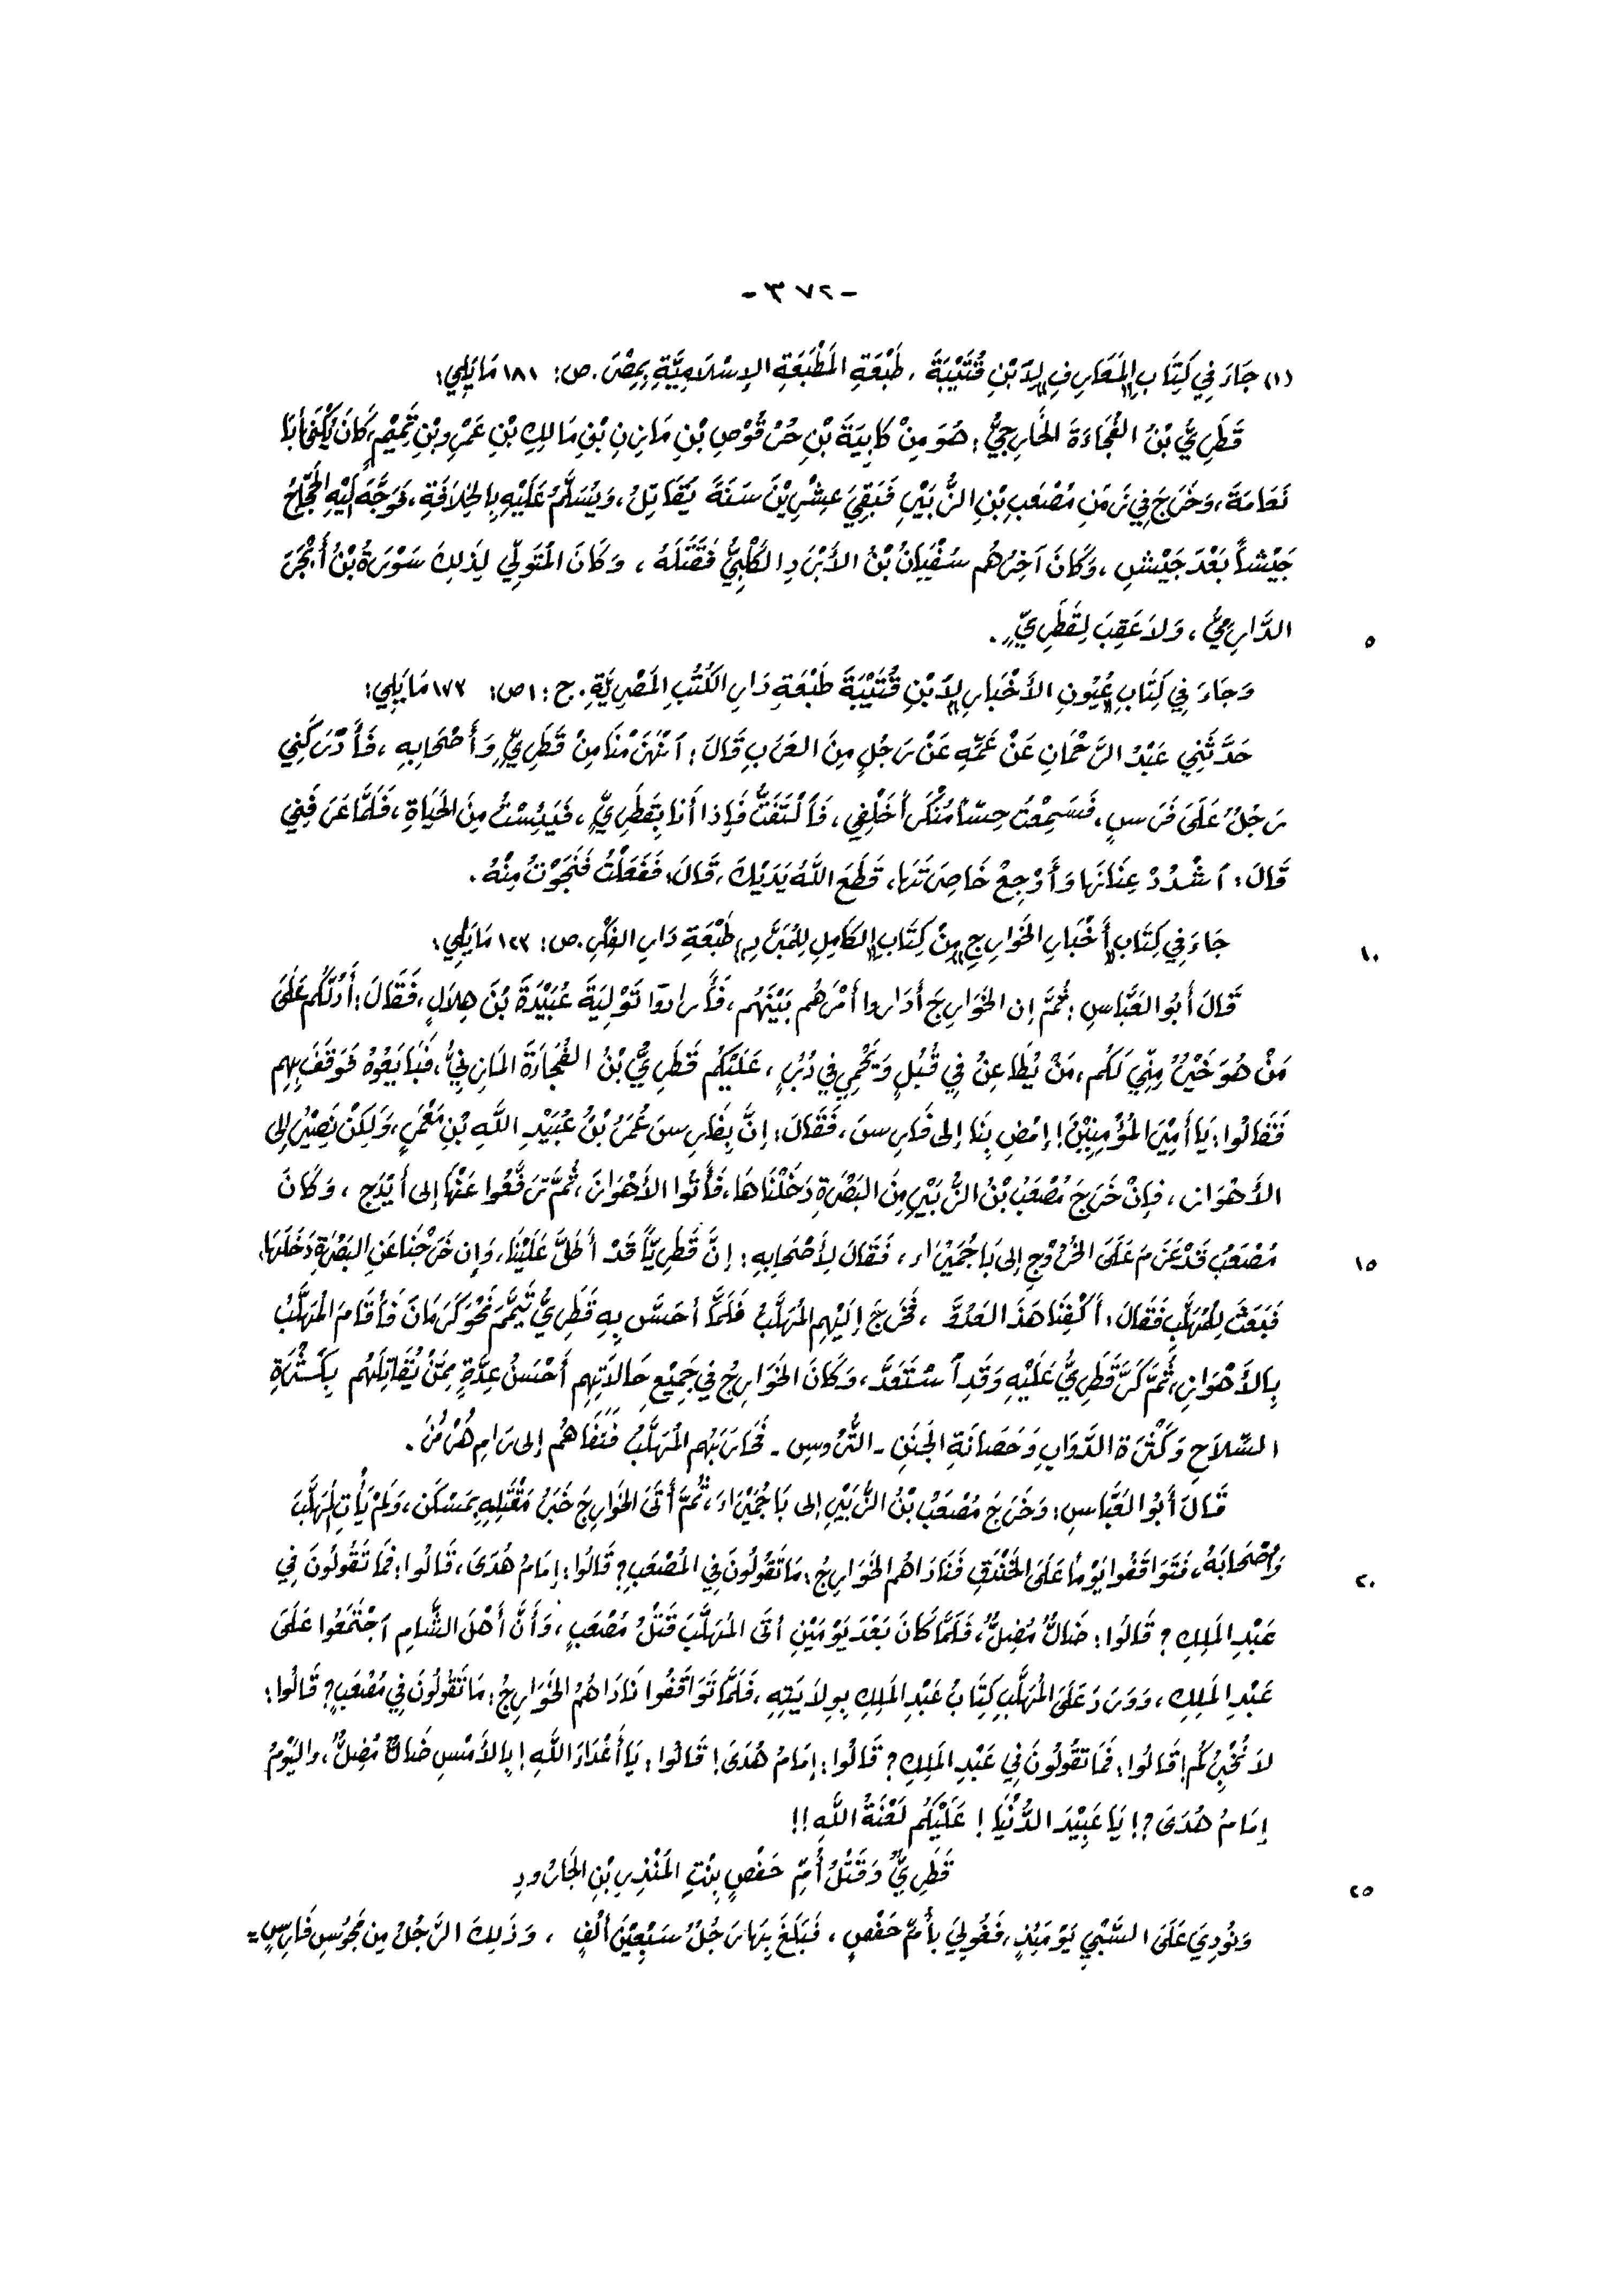 -٣٧٢-
(١) جَاءَ فِي كِتَابِ "المَعَارِفِ" لِابْنِ قُتَيْبَةَ. طَبْعَةِ المَطْبَعَةِ الإِسْلَامِيَّةِ بِمِصْرَ. ص: ١٨١ مَا يَلِي:
قَطَرِيُّ بْنُ الفُجَاءَةَ الخَارِجِيُّ: هُوَ مِنْ كَابِيَةَ بْنِ حُرْقُوْصِ بْنِ مَازِنِ بْنِ مَالِكِ بْنِ عَمْرِو بْنِ تَمِيْمٍ، كَانَ يُكْنَى أَبَا
نَعَامَةَ، وَخَرَجَ فِي زَمَنِ مُصْعَبِ بْنِ الزُّبَيْرِ فَبَقِيَ عِشْرِيْنَ سَنَةً يُقَاتِلُ، وَيُسَلَّمُ عَلَيْهِ بِالخِلَافَةِ، فَوَجَّهَ إِلَيْهِ الحَجَّاجُ
جَيْشاً بَعْدَ جَيْشٍ، وَكَانَ آخِرُهُم سُفْيَانُ بْنُ الأَبْرَدِ الكَلْبِيُّ فَقَتَلَهُ، وَكَانَ المُتَوَلِّي لِذَلِكَ سَوْرَةُ بْنُ أَبْجَرَ
٥ الدَّارِمِيُّ، وَلَا عَقِبَ لِقَطَرِيٍّ.
وَجَاءَ فِي كِتَابِ "عُيُونِ الأَخْبَارِ" لِابْنِ قُتَيْبَةَ طَبْعَةِ دَارِ الكُتُبِ المَصْرِيَّةِ. ج: ١ ص: ١٧٣ مَا يَلِي:
حَدَّثَنِي عَبْدُ الرَّحْمَانِ عَنْ عَمِّهِ عَنْ رَجُلٍ مِنَ العَرَبِ قَالَ: اَنْهَزَمْنَا مِنْ قَطَرِيٍّ وَأَصْحَابِهِ، فَأَدْرَكَنِي
رَجُلٌ عَلَى فَرَسٍ، فَسَمِعْتُ حِسّاً مُنْكَراً خَلْفِي، فَالْتَفَتُّ فَإِذا أَنا بِقَطَرِيٍّ، فَيَئِسْتُ مِنَ الحَيَاةِ، فَلَمَّا عَرَفَنِي
قَالَ: اَشْدُدْ عِنَانَهَا وَأَوْجِعْ خَاصِرَتَهَا، قَطَعَ اللَّهُ يَدَيْكَ، قَالَ: فَفَعَلْتُ فَنَجَوْتُ مِنْهُ.
١٠ جَاءَ فِي كِتَابِ "أَخْبَارِ الخَوَارِجِ" مِنْ كِتَابِ "الكَامِلِ لِلْمُبَرَّدِ" طَبْعَةِ دَارِ الفِكْرِ. ص: ١٢٣ مَا يَلِي:
قَالَ أَبُو العَبَّاسِ: ثُمَّ إن الخَوَارِجَ أَدَاروا أَمْرَهُم بَيْنَهُم، فَأَرادوا تَوْلِيَةَ عُبَيْدَةَ بْنَ هِلَالٍ، فَقَالَ: أَدُلُّكُم عَلَى
مَنْ هُوَ خَيْرٌ مِنِّي لَكُم، مَنْ يُطَاعِنُ فِي قُبُلٍ وَيَحْمِي فِي دُبُرٍ، عَلَيْكُم قَطَرِيُّ بْنُ الفُجَاءَةَ المَازِنِيُّ، فَبَايَعُوهُ فَوَقَفَ بِهِم
فَقَالُوا: يَا أَمِيْرَ المُؤْمِنِيْنَ! إمْضِ بِنَا إلى فَارِسَ، فَقَالَ: إنَّ بِفَارِسَ عُمَرَ بْنُ عُبَيْدِ اللَّهِ بْنِ مَعْمَرٍ، وَلَكِنْ نَصِيْرُ إلى
الأَهْوَازِ، فَإنْ خَرَجَ مُصْعَبُ بْنُ الزُّبَيْرِ مِنَ البَصْرَةِ دَخَلْنَاهَا، فَأَتُوا الأَهْوَازَ، ثُمَّ تَرَفَّعُوا عَنْهَا إلى أَيْذَجٍ، وَكَانَ
١٥ مُصْعَبُ قَدْ عَزَمَ عَلَى الخُرُوْجِ إلى بَاجُمَيْرَاء، فَقَالَ لِأَصْحَابِهِ: إنَّ قَطَرِيّاً قَدْ أَطَلَّ عَلَيْنَا، وَإِن خَرَجْنَا عَنِ البَصْرَةِ دَخَلَهَا،
فَبَعَثَ لِلْمُهَلَّبِ فَقَالَ: اَكْفِنَا هَذَ العَدُوَّ، فَخَرَجَ إِلَيْهِم المُهَلَّبُ فَلَمَّا أحَسَّ بِهِ قَطَرِيُّ تَيَمَّمَ نَحْوَ كَرْمَانَ فَأَقَامَ المُهَلَّبُ
بِالأَهْوَازِ، ثُمَّ كَرَّ قَطَرِيُّ عَلَيْهِ وَقَدِ اَسْتَعَدَّ، وَكَانَ الخَوَارِجُ فِي جَمِيْعِ حَالَاتِهِم أَحْسَنُ عِدَّةٍ مِمَّنْ يُقَاتِلُهُم بِكَثْرَةِ
السِّلَاحِ وَكَثْرَةِ الدَّوَابِ وَحَصَانَةِ الجُنَنِ - التُّرُوسِ - فَحَارَبَهُم المُهَلَّبُ فَنَفَاهُم إلى رَامِ هُرْمُزَ.
قَالَ أَبُو العَبَّاسِ: وَخَرَجَ مُصْعَبُ بْنُ الزُّبَيْرِ إلى بَاجُمَيْرَاءَ، ثُمَّ أَتَى الخَوَارِجَ خَبَرُ مَقْتَلِهِ بِمَسْكَنٍ، وَلَمْ يَأْتِ المُهَلَّبَ
٢٠ وَأَصْحَابَهُ، فَتَوَاقَفُوا يَوْماً عَلَى الخَنْدَقِ فَنَادَاهُم الخَوَارِجُ: مَا تَقُولُونَ فِي المُصْعَبِ؟ قَالُوا: إمَامُ هُدَىً، قَالُوا: فَمَا تَقُولُونَ فِي
عَبْدِ المَلِكِ؟ قَالُوا: ضَالٌّ مُضِلٌّ، فَلَمَّا كَانَ بَعْدَ يَوْمَيْنِ أتَى المُهَلَّبَ قَتْلُ مُصْعَبٍ، وَأَنَّ أَهْلَ الشَّامِ اَجْتَمَعُوا عَلَى
عَبْدِ المَلِكِ، وَوَرَدَ عَلَى المُهَلَّبِ كِتَابُ عَبْدِ المَلِكِ بِوِلَايَتِهِ، فَلَمَّا تَوَاقَفُوا نَادَاهُمُ الخَوَارِجُ: مَا تَقُولُونَ فِي مُصْعَبٍ؟ قَالُوا:
لَا نُخْبِرُكُم! قَالُوا: فَمَا تَقُولُونَ فِي عَبْدِ المَلِكِ؟ قَالُوا: إمَامُ هُدَىً! قَالُوا: يَا أَعْدَاءَ اللَّهِ! بِالأَمْسِ ضَالٌّ مُضِلٌّ، واليَوْمُ
إمَامُ هُدَىً؟! يَا عَبِيْدَ الدُّنْيَا! عَلَيْكُم لَعْنَةُ اللَّهِ!!
٢٥ قَطَرِيٌّ وَقَتْلُ أُمِّ حَفْصٍ بِنْتِ المُنْذِرِ بْنِ الجَارُودِ
وَنُودِيَ عَلَى السَّبْيِ يَوْمَئِذٍ، فَغُولِيَ بأُمِّ حَفْصٍ، فَبَلَغَ بِهَا رَجُلٌ سَبْعِيْنَ أَلْفٍ، وَذَلِكَ الرَّجُلُ مِن مَجُوسِ فَارِسٍ =